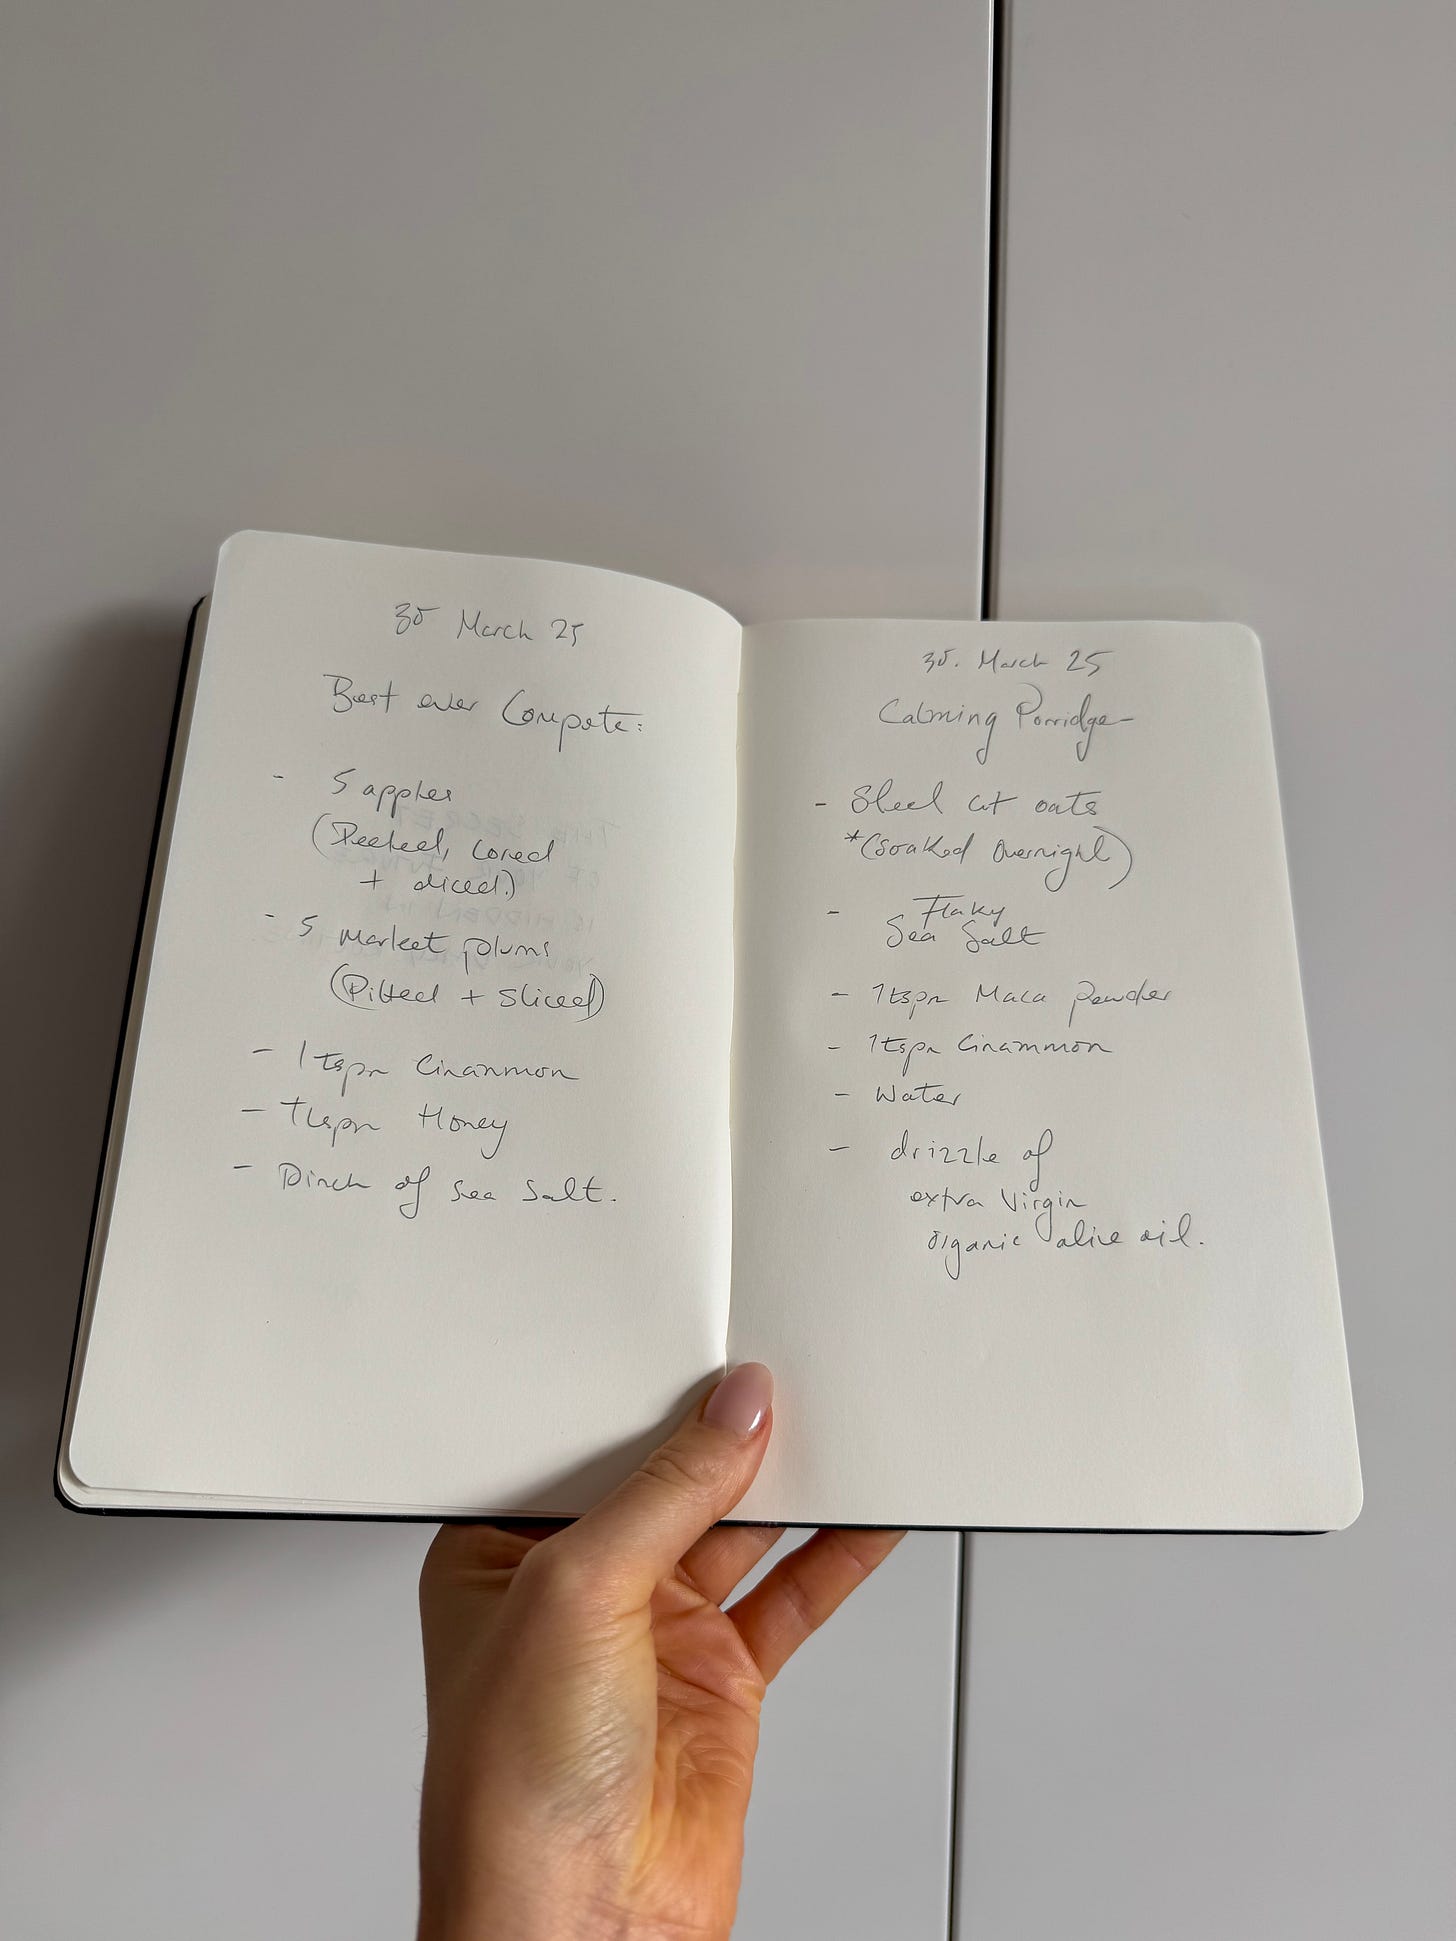 30 March 25
Best ever Compote:
- 5 apples
(Peeled, cored
+ diced.)
- 5 market plums
(Pitted + sliced)
- 1 tspn Cinanmon
- 1 tspn Honey
- Pinch of Sea Salt.
30. March 25
Calming Porridge
- Steel cut oats
*(soaked overnight)
- Flaky
Sea Salt
- 1 tspn Maca powder
- 1 tspn Cinammon
- Water
- drizzle of
extra Virgin
organic olive oil.
THE SECRET
OF YOUR FUTURE
IS HIDDEN IN
YOUR